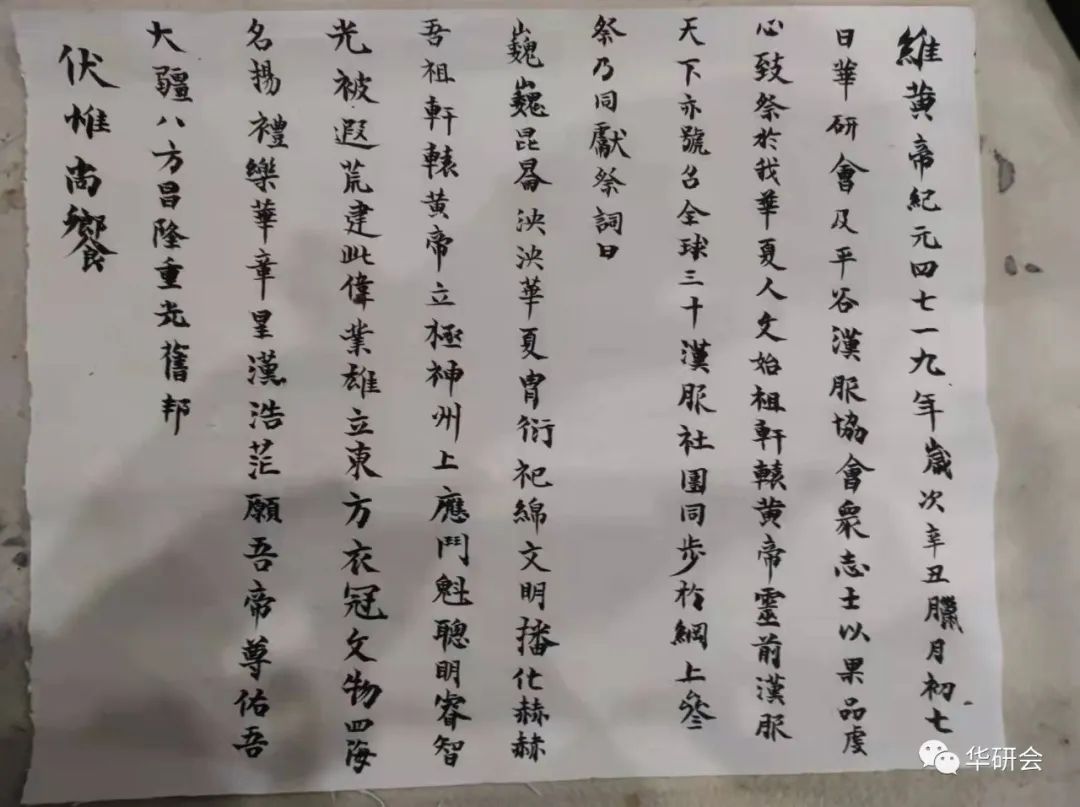 維黃帝紀元四七一九年歲次辛丑臘月初七
日華研會及平谷漢服協會衆志士以果品虔
心致祭於我華夏人文始祖軒轅黃帝靈前漢服
天下亦號召全球三十漢服社團同步於網上參
祭乃同獻祭詞曰
巍巍昆侖泱泱華夏胄衍祀綿文明播化赫赫
吾祖軒轅黃帝立極神州上應鬥魁聰明睿智
光被遐荒建此偉業雄立東方衣冠文物四海
名揚禮樂華章星漢浩茫願吾帝尊佑吾
大疆八方昌隆重光舊邦
伏惟尚饗
华研会